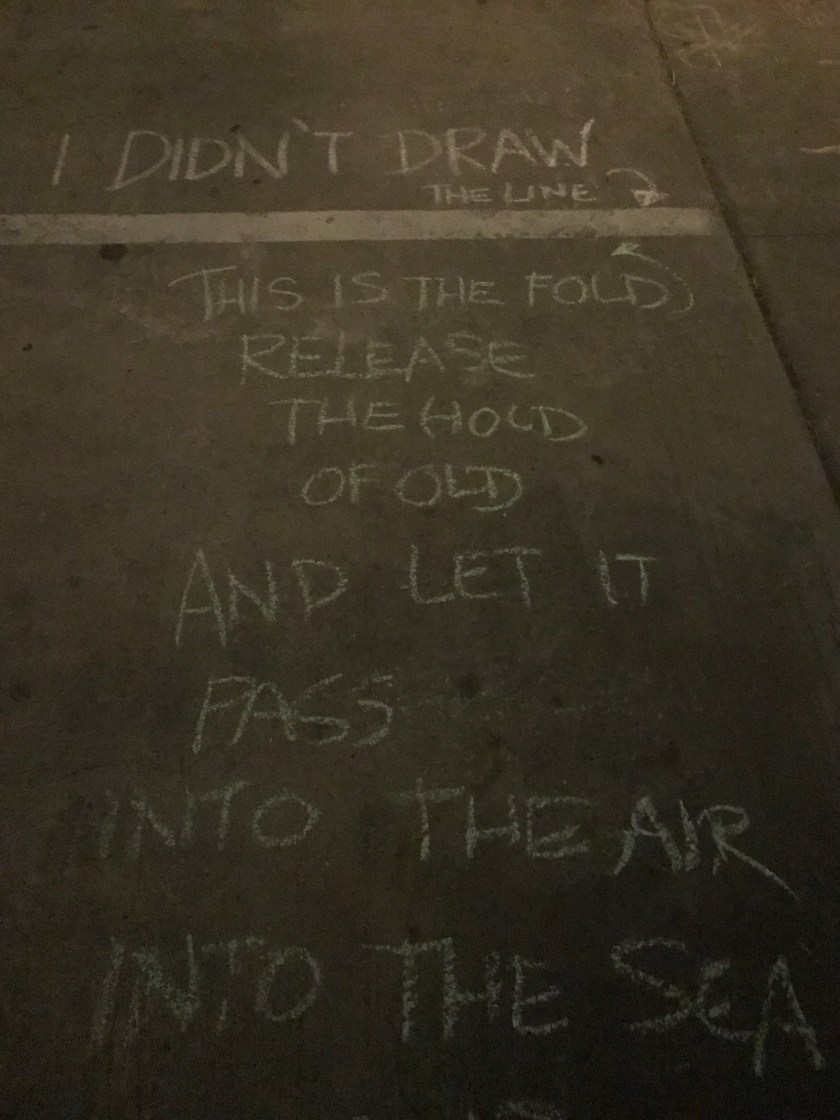 I DIDN'T DRAW
THE LINE
THIS IS THE FOLD
RELEASE
THE HOLD
OF OLD
AND LET IT
PASS
INTO THE AIR
INTO THE SEA